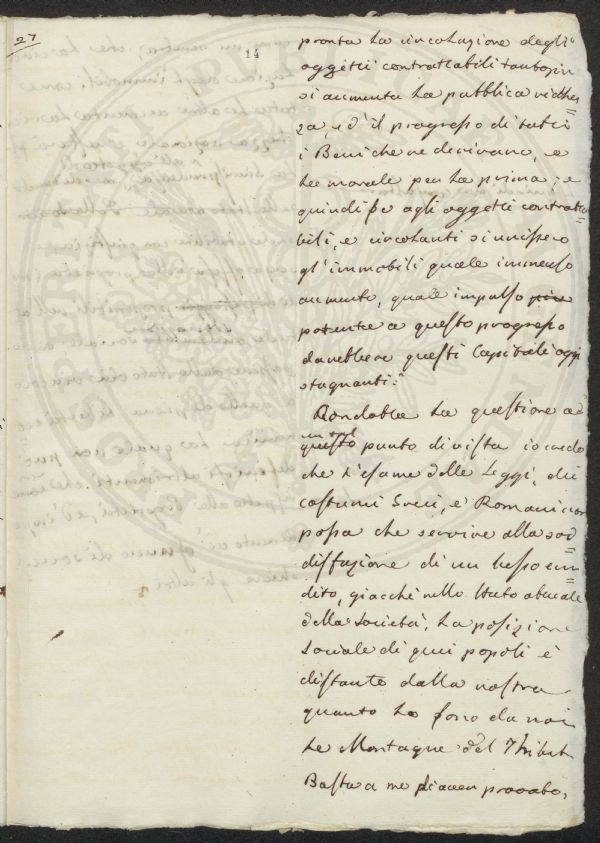 27
14
pronta la circolazione degli
oggetti contrattabili tantopiu
si aumenta la pubblica richez
za, ed il progresso di tutti
i Beni che ne derivano, e
la morale per la prima; e
quindi se agli oggetti contratta
bili, e circolanti si unissero
gl'immobili quale immenso
aumento, quale impulso piu
potente a questo progresso
darebbero questi Capitali oggi
stagnanti.
Ridotta la questione ad
un tal
questo punto di vista io credo
che l'esame delle Leggi, dei
costumi Greci, e Romani non
possa che servire alla sod
disfazione di un bello eru
dito, giacchè nello stato attuale
della società, la posizione
sociale di quei popoli è
distante dalla nostra
quanto lo sono da noi
le Montagne del Thibet
Basta a me di aver provato,